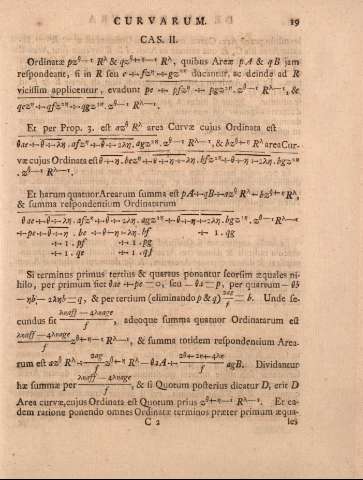 CURVARUM. 19
CAS. II.
Ordinatæ pz^{θ−1} R^λ & qz^{θ+η−1} R^λ, quibus Areæ pA & qB jam
respondent, si in R seu e+fz^η+gz^{2η} ducantur, ac deinde ad R
vicissim applicentur, evadunt pe+pfz^η+pgz^{2η}.z^{θ−1} R^{λ−1}, &
qez^η+qfz^{2η}+qgz^{3η}.z^{θ−1} R^{λ−1}.
Et per Prop. 3. est az^θ R^λ area Curvæ cujus Ordinata est
θae+θ+λη.afz^η+θ+2λη.agz^{2η}.z^{θ−1} R^{λ−1}, & bz^{θ+η} R^λ area Cur-
væ cujus Ordinata est θ+η.bez^η+θ+η+λη.bfz^{2η}+θ+η+2λη.bgz^{3η}
.z^{θ−1} R^{λ−1}.
Et harum quatuor Arearum summa est pA+qB+az^θ R^λ+bz^{θ+η}R^λ,
& summa respondentium Ordinatarum
θae+θ+λη.afz^η+θ+2λη.agz^{2η}+θ+η+2λη.bgz^{3η}.z^{θ−1}R^{λ−1}
+pe+θ+η.be+θ+η+λη.bf+1.qg
+1.pf+1.pg
+1.qe+1.qf
Si terminus primus tertius & quartus ponantur seorsim æquales ni-
hilo, per primum fiet θae+pe=0, seu −θa=p, per quartum −θb
−ηb−2ληb=q, & per tertium (eliminando p & q) 2ag/f=b. Unde se-
cundus fit ληaff−4ληage/f, adeoque summa quatuor Ordinatarum est
ληaff−4ληage/f z^{θ+η−1} R^{λ−1}, & summa totidem respondentium Area-
rum est az^θ R^λ+2ag/f z^{θ+η} R^λ−θaA+2θ+2η+4λη/f agB. Dividantur
hæ summæ per ληaff−4ληage/f, & si Quotum posterius dicatur D, erit D
Area curvæ, cujus Ordinata est Quotum prius z^{θ+η−1} R^{λ−1}. Et ea-
dem ratione ponendo omnes Ordinatæ terminos præter primum æqua-
C 2 les